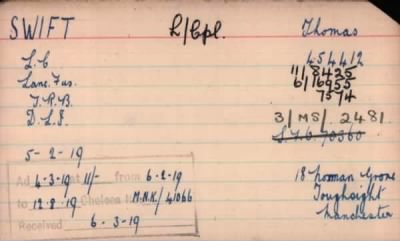 SWIFT L/Cpl. Thomas
L.C 454412
Lanc. Fus. 11/8425
6/16955
T.R.B. 7574
D.L.I. 3/MS/. 2481
5-2-19
Ad 4-3-19 11/- from 6-2-19
to 12.8.19 Chelsea M.N.K/41066
Received 6-3-19
18 Norman Grove
Longsight
Manchester